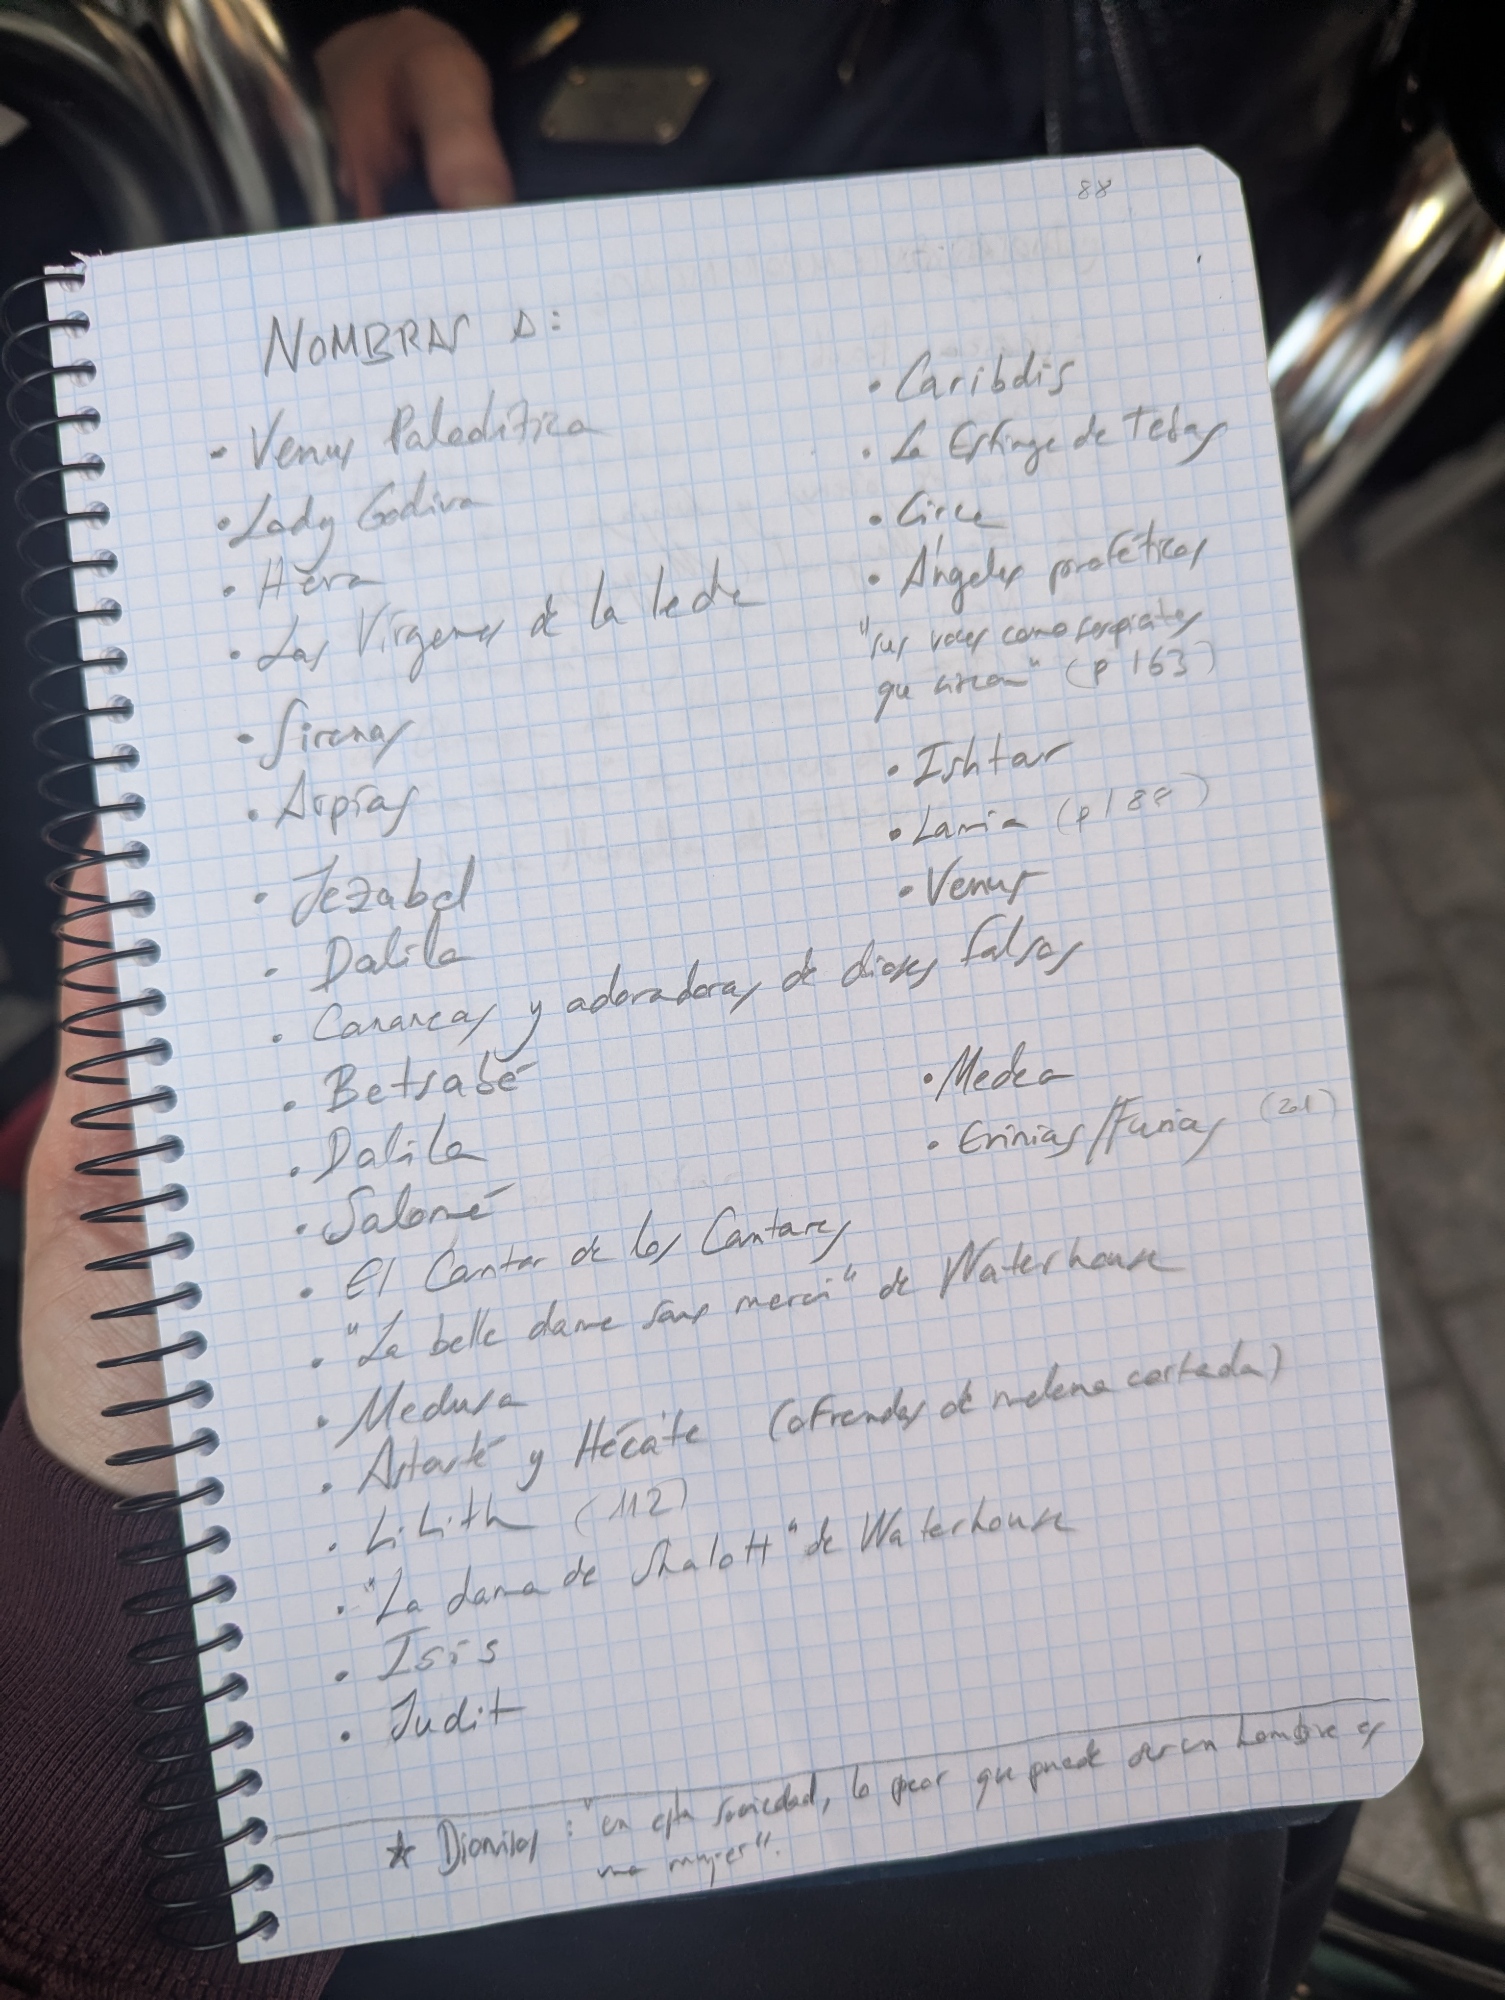 88
NOMBRAR A:
• Venus Paleolítica
• Lady Godiva
• Hera
• Las Vírgenes de la leche
• Sirenas
• Arpías
• Jezabel
• Dalila
• Cananeas y adoradoras de dioses falsos
• Betsabé
• Dalila
• Salomé
• El Cantar de los Cantares
• "La belle dame sans merci" de Waterhouse
• Medusa
• Astarté y Hécate (ofrendas de melena cortada)
• Lilith (112)
• "La dama de Shalott" de Waterhouse
• Isis
• Judit
• Caribdis
• La Esfinge de Tebas
• Circe
• Ángeles proféticos
"sus voces como serpientes
que sisean" (p 163)
• Ishtar
• Lamia (p 188)
• Venus
• Medea
• Erinias/Furias (201)
★ Dionisos: "en esta sociedad, lo peor que puede ser un hombre es
una mujer".